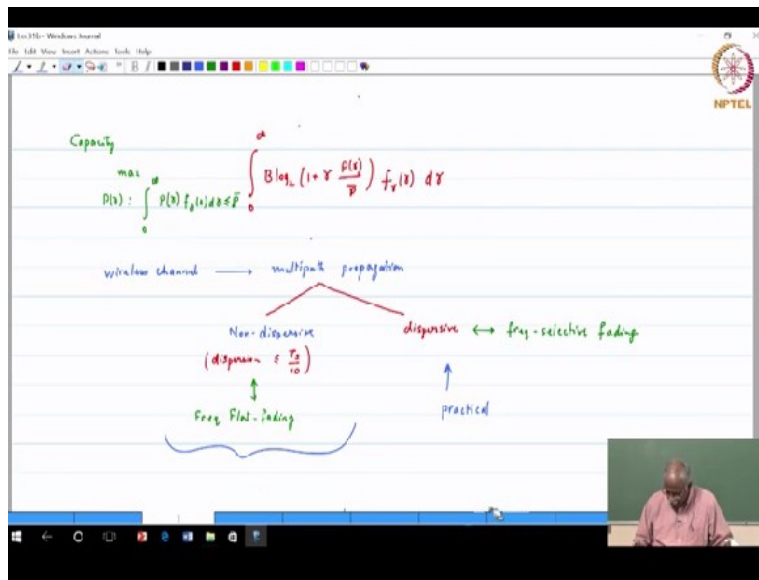 Lec31b - Windows Journal
File Edit View Insert Actions Tools Help
NPTEL
Capacity
max
P(γ) : ∫₀^∞ P(γ) f_γ(γ) dγ ≤ P̄ ∫₀^∞ B log₂ (1 + γ P(γ)/P̄) f_γ(γ) dγ
wireless channel ⟶ multipath propagation
Non-dispersive dispersive ↔ freq-selective fading
(dispersion ≤ Ts/10)
practical
Freq Flat-fading